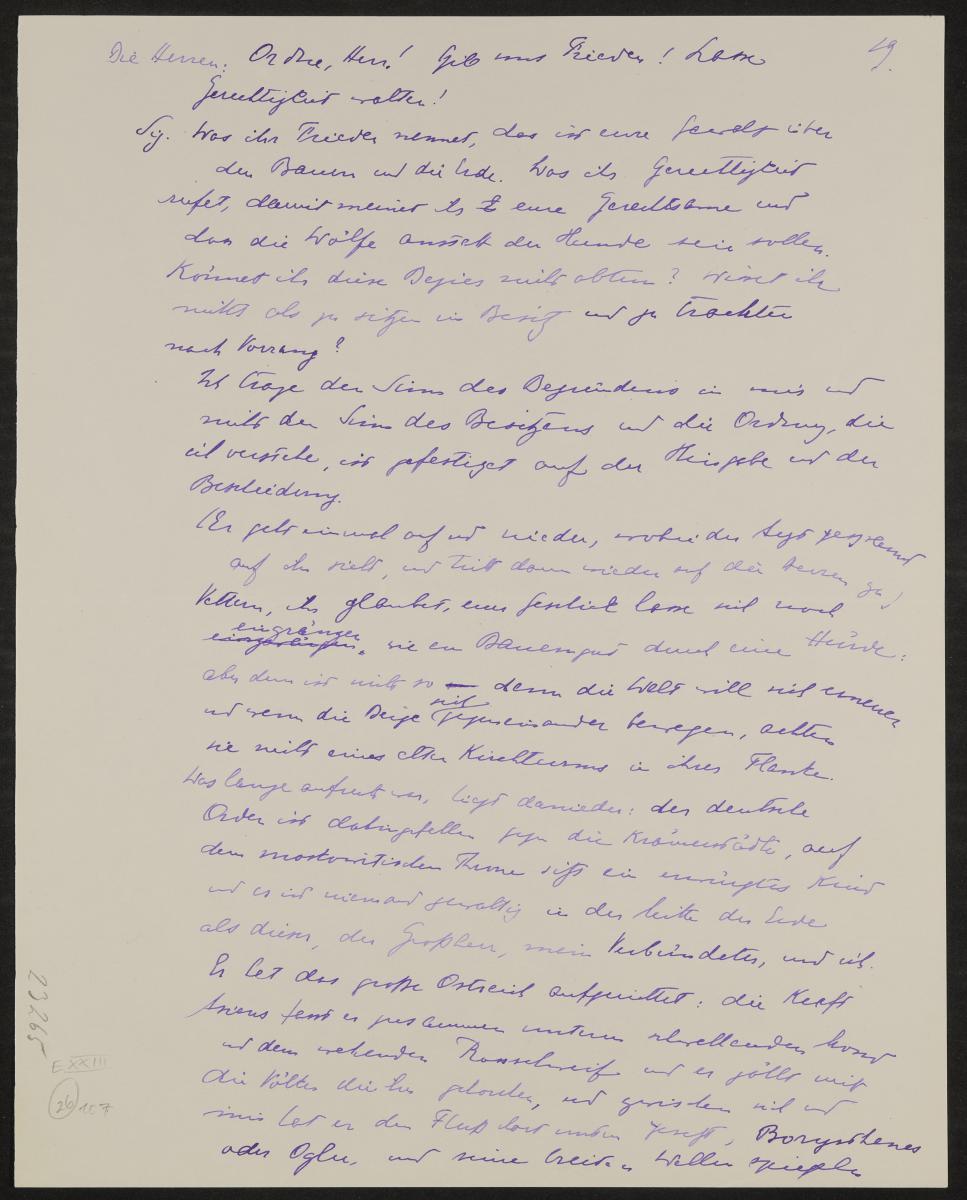 19.
Die Herren: Ordne, Herr! Gib uns Frieden! Lasse
Gerechtigkeit walten!
Sig. Was ihr Frieden nennet, das ist eure Gewalt über
den Bauern und die Erde. Was ihr Gerechtigkeit
rufet, damit meinet ihr eure Gerechtsame und
dass die Wölfe anstatt der Hunde sein sollen.
Könnet ihr diese Begier nicht abtun? Wisset ihr
nichts als zu sitzen im Besitz und zu trachten
nach Vorrang?
Ich trage den Sinn des Begründens in mir und
nicht den Sinn des Besitzens und die Ordnung, die
ich verstehe, ist gefestiget auf der Hingabe und der
Bescheidung.
(Er geht einmal auf und nieder, wobei der
auf ihn sieht, und tritt dann wieder auf die Herren zu)
Vettern, ihr glaubet, euer Geschick lasse sich noch
eingrängen
wie ein Bauerngut durch eine Hürde:
aber dem ist nicht so denn die Welt will sich erneuen
und wenn die Berge sich gegeneinander bewegen, achten
sie nicht eines alten Kirchturms in ihrer Flanke.
Was lange aufrecht war, liegt danieder: der deutsche
Orden ist dahingefallen gegen die Krämerstädte, auf
dem moskowitischen Throne sitzt ein Kind
und es ist niemand gewaltig in der Mitte der Erde
als dieser, der Großherr, mein Verbündeter, und ich.
Er hat das große Ostreich aufgerichtet: die Kraft
Asiens fasst er zusammen unterm schwellenden Mond
und dem wehenden Rossschweif und er zählt nicht
die Völker die ihm gehorchen, und zwischen sich und
mir hat er den Fluß dort unten gesetzt, Borysthenes
oder Oglu, und seine breiten Wellen spiegeln
23265
E XXIII
26 107